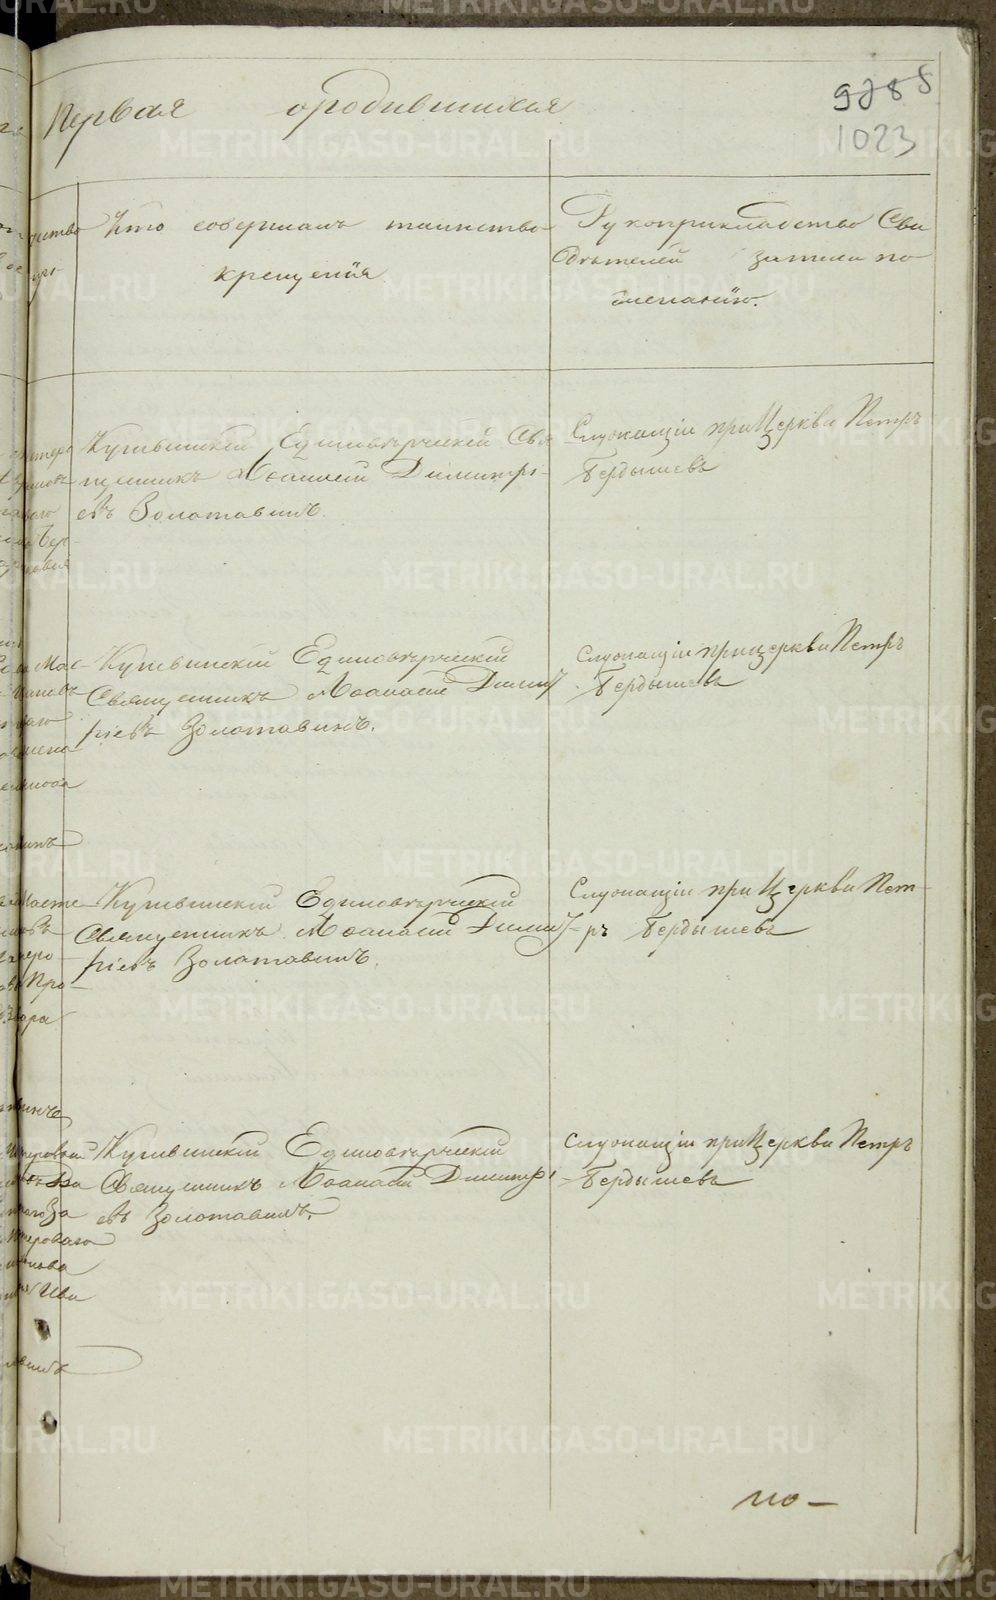 Первая о родившихся
1023
Кто совершалъ таинство
крещенія
Рукоприкладство Сви
дѣтелей записи по
желанію.
Кушвинскій Единовѣрческій Свя
щенникъ Аѳанасій Димитрі
евъ Золотавинъ.
Служащій при Церкви Петръ
Бердышевъ
Кушвинскій Единовѣрческій
Священникъ Аѳанасій Димит
ріевъ Золотавинъ.
Служащій при церкви Петръ
Бердышевъ
Кушвинскій Единовѣрческій
Священникъ Аѳанасій Димит
ріевъ Золотавинъ.
Служащій при Церкви Пет-
ръ Бердышевъ
Кушвинскій Единовѣрческій
Священникъ Аѳанасій Димитрі
евъ Золотавинъ.
Служащій при Церкви Петръ
Бердышевъ
по-
METRIKI.GASO-URAL.RU